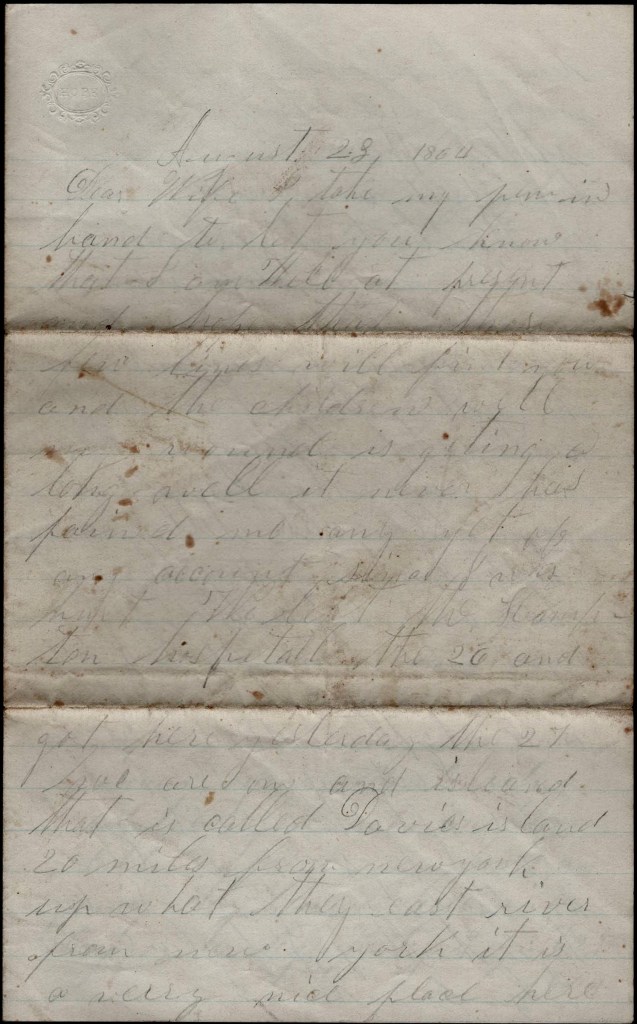 August 28 1864
Dear Wife I take my pen in
hand to let you know
that I am Well at present
and hope that these
few lines will find you
and the children well
my wound is geting a
long well it never has
pained me any yet of
any account since I was
hurt We left the Hamp-
ton hospitall the 26 and
got here yesterday the 27
We are on and island
that is called Davies island
20 miles from new york
up what they cast river
from new york it is
a very nice place here